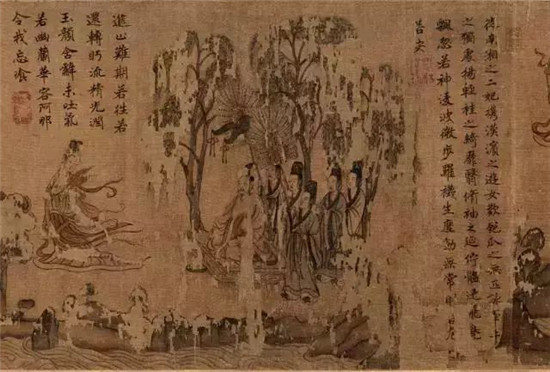 從南湘之二妃攜漢濱之遊女歎匏瓜之無匹詠
之獨處揚輕袿之綺靡翳脩袖之延佇體迅飛鳧
飄忽若神陵波微步羅襪生塵動無常則若危
若安
進止難期若往若
還轉眄流精光潤
玉顏含辭未吐氣
若幽蘭華容阿那
令我忘飡